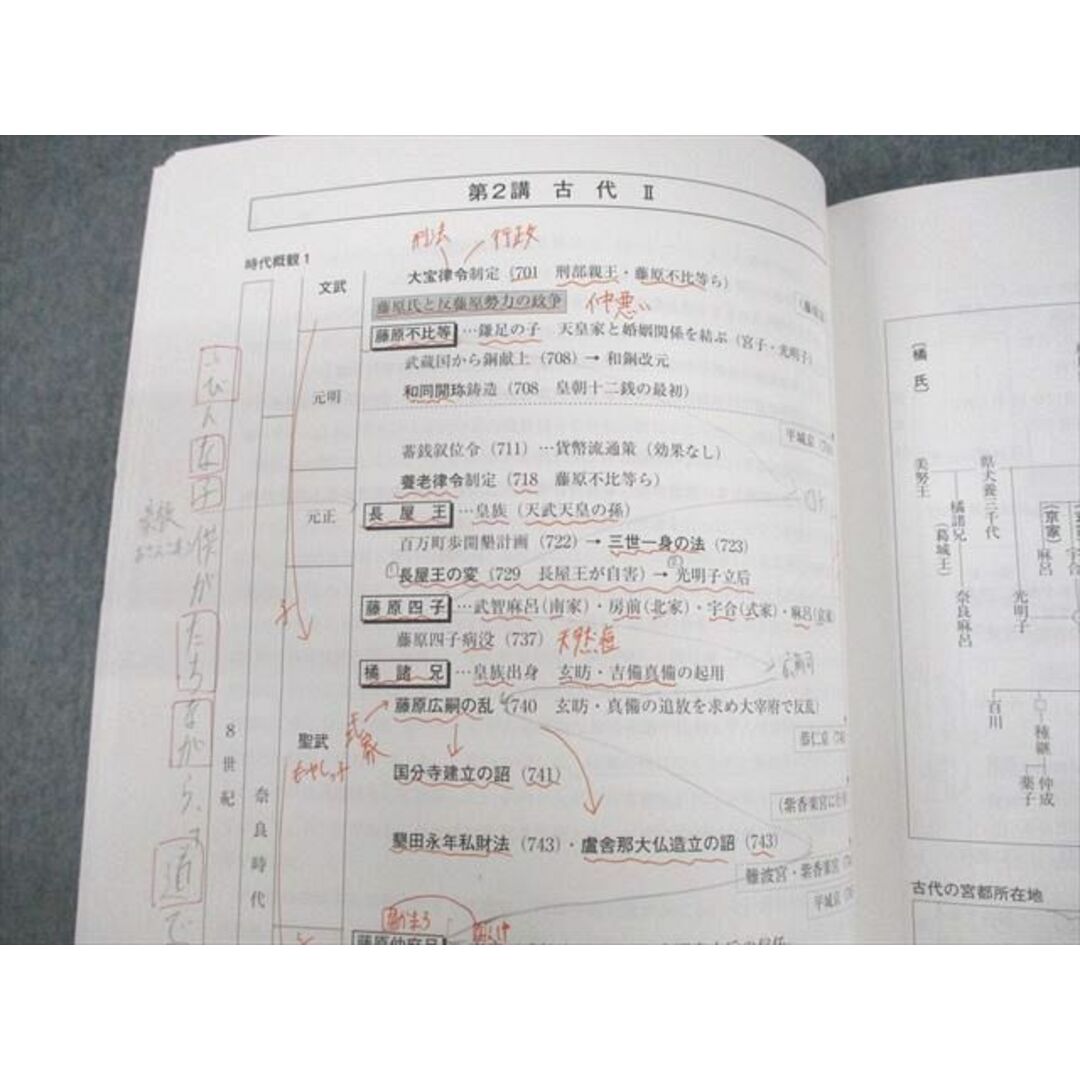 第2講 古代 Ⅱ
時代概観1
刑法 行政
文武
大宝律令制定（701 刑部親王・藤原不比等ら）
藤原氏と反藤原勢力の政争 仲悪い
藤原不比等…鎌足の子 天皇家と婚姻関係を結ぶ（宮子・光明子）
武蔵国から銅献上（708）→ 和銅改元
元明
和同開珎鋳造（708 皇朝十二銭の最初）
平城京
蓄銭叙位令（711）…貨幣流通策（効果なし）
養老律令制定（718 藤原不比等ら）
元正
長屋王…皇族（天武天皇の孫）
百万町歩開墾計画（722）→ 三世一身の法（723）
①長屋王の変（729 長屋王が自害）→ ②光明子立后
藤原四子…武智麻呂（南家）・房前（北家）・宇合（式家）・麻呂（京家）
藤原四子病没（737） 天然痘
橘諸兄…皇族出身 玄昉・吉備真備の起用
藤原広嗣の乱（740 玄昉・真備の追放を求め大宰府で反乱）
式家
聖武
恭仁京
国分寺建立の詔（741）
8世紀
奈良時代
墾田永年私財法（743）・盧舎那大仏造立の詔（743）
難波宮・紫香楽宮
平城京
〔橘氏〕
美努王
県犬養三千代
橘諸兄（葛城王）
奈良麻呂
光明子
（京家）麻呂
宇合
百川
種継
仲成
薬子
古代の宮都所在地